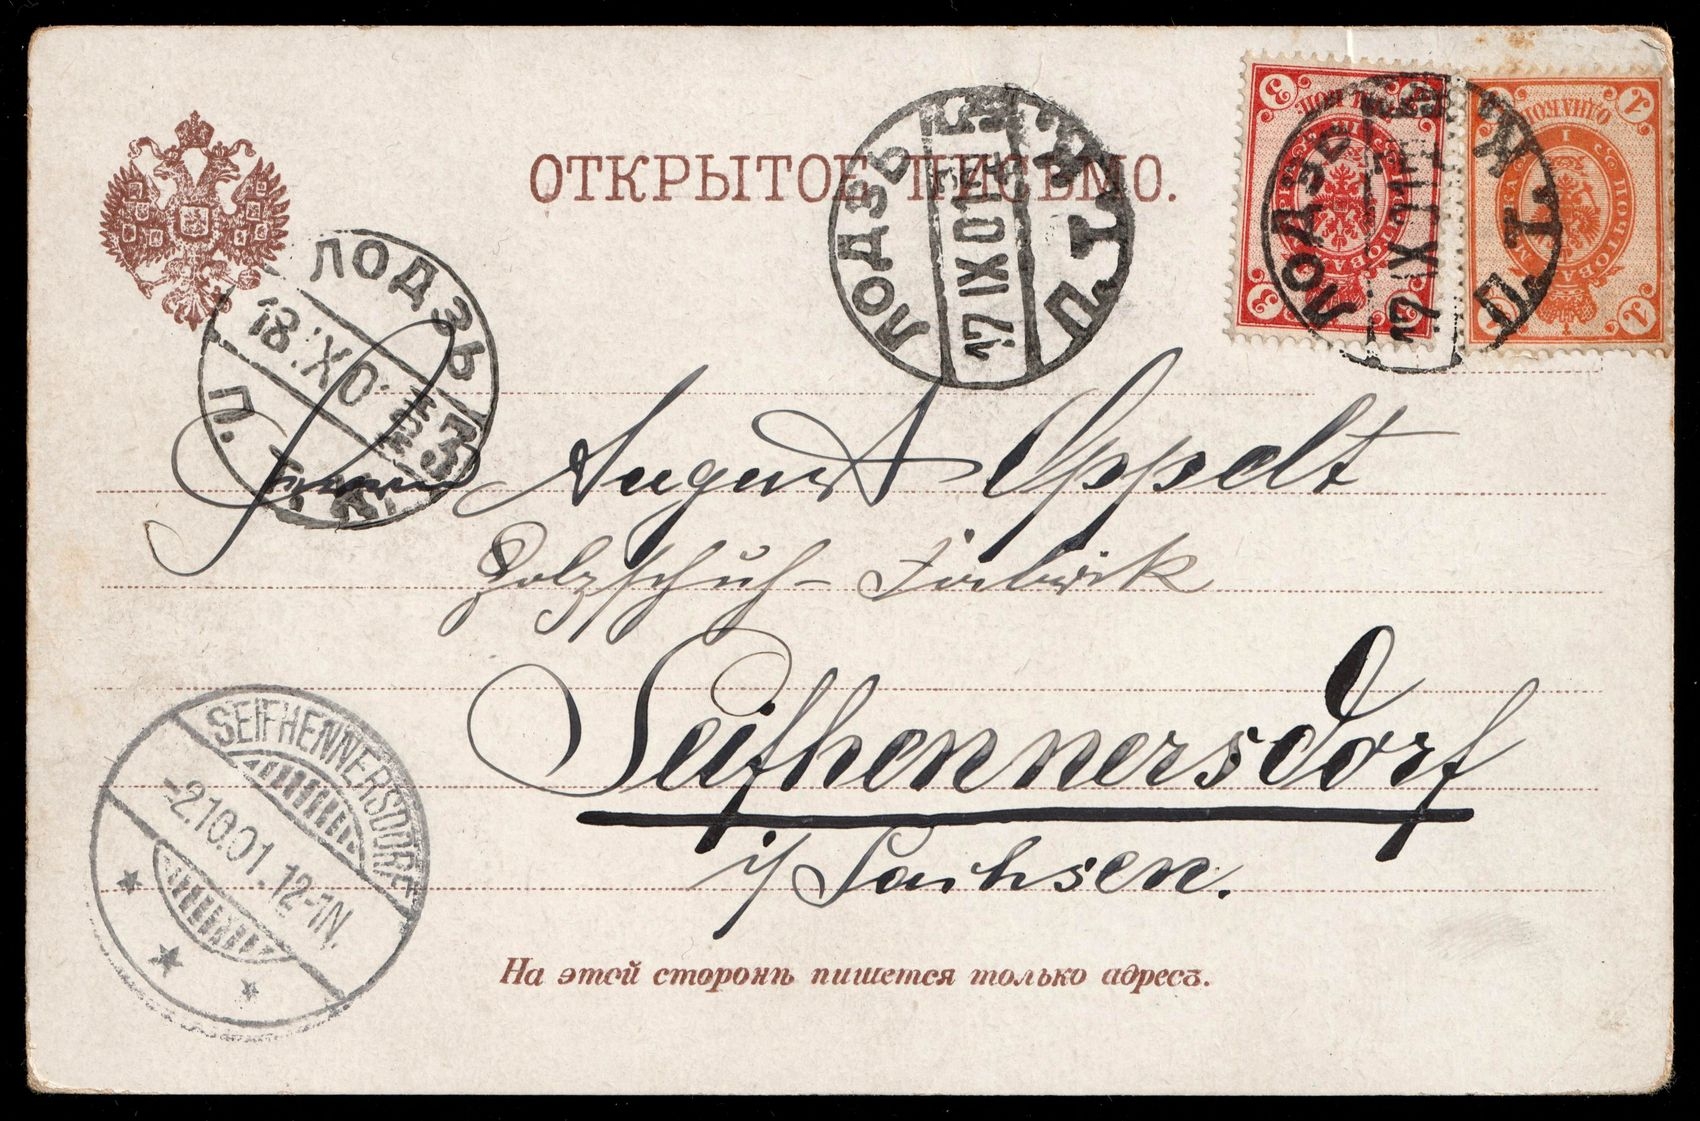 ОТКРЫТОЕ ПИСЬМО.
ЛОДЗЬ
17 IX 01
П. Т. К.
3
1
ОДНА КОП.
ПОЧТОВАЯ МАРКА
ЛОДЗЬ
17 IX 01
П. Т. К.
ЛОДЗЬ
18 IX 0
П. Т. К.
3
August Oppelt
Holzschuh-Fabrik
Seifhennersdorf
i/ Sachsen.
SEIFHENNERSDORF
-2.10.01.12-1N.
На этой сторонѣ пишется только адресъ.